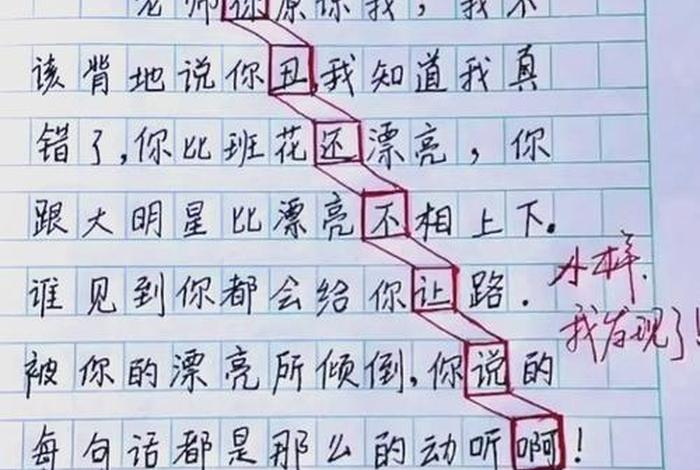 老师你原谅我，我不
该背地说你丑，我知道我真
错了，你比班花还漂亮，你
跟大明星比漂亮不相上下。
谁见到你都会给你让路．
小样．
我发现了！
被你的漂亮所倾倒，你说的
每句话都是那么的动听啊！